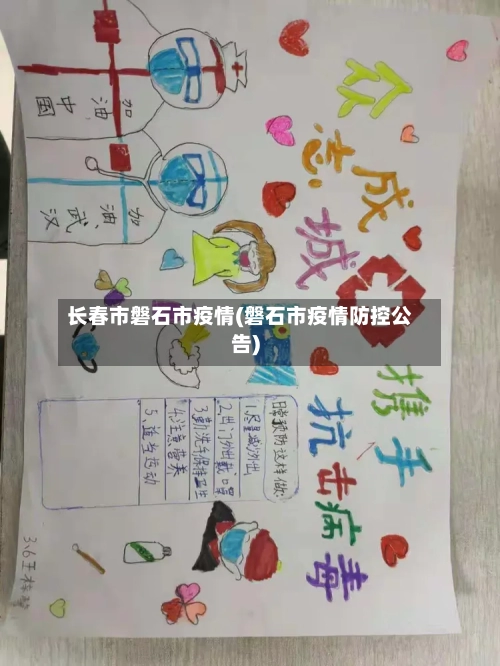 众志成城
携手
抗击病毒
加油
中国
加油武汉
长春市磐石市疫情(磐石市疫情防控公
告)
日常预防这样做:
1.尽量减少外出
2.出门外出戴口罩
3.勤洗手保持卫生
4.注意营养
5.适当运动
3.6王梓